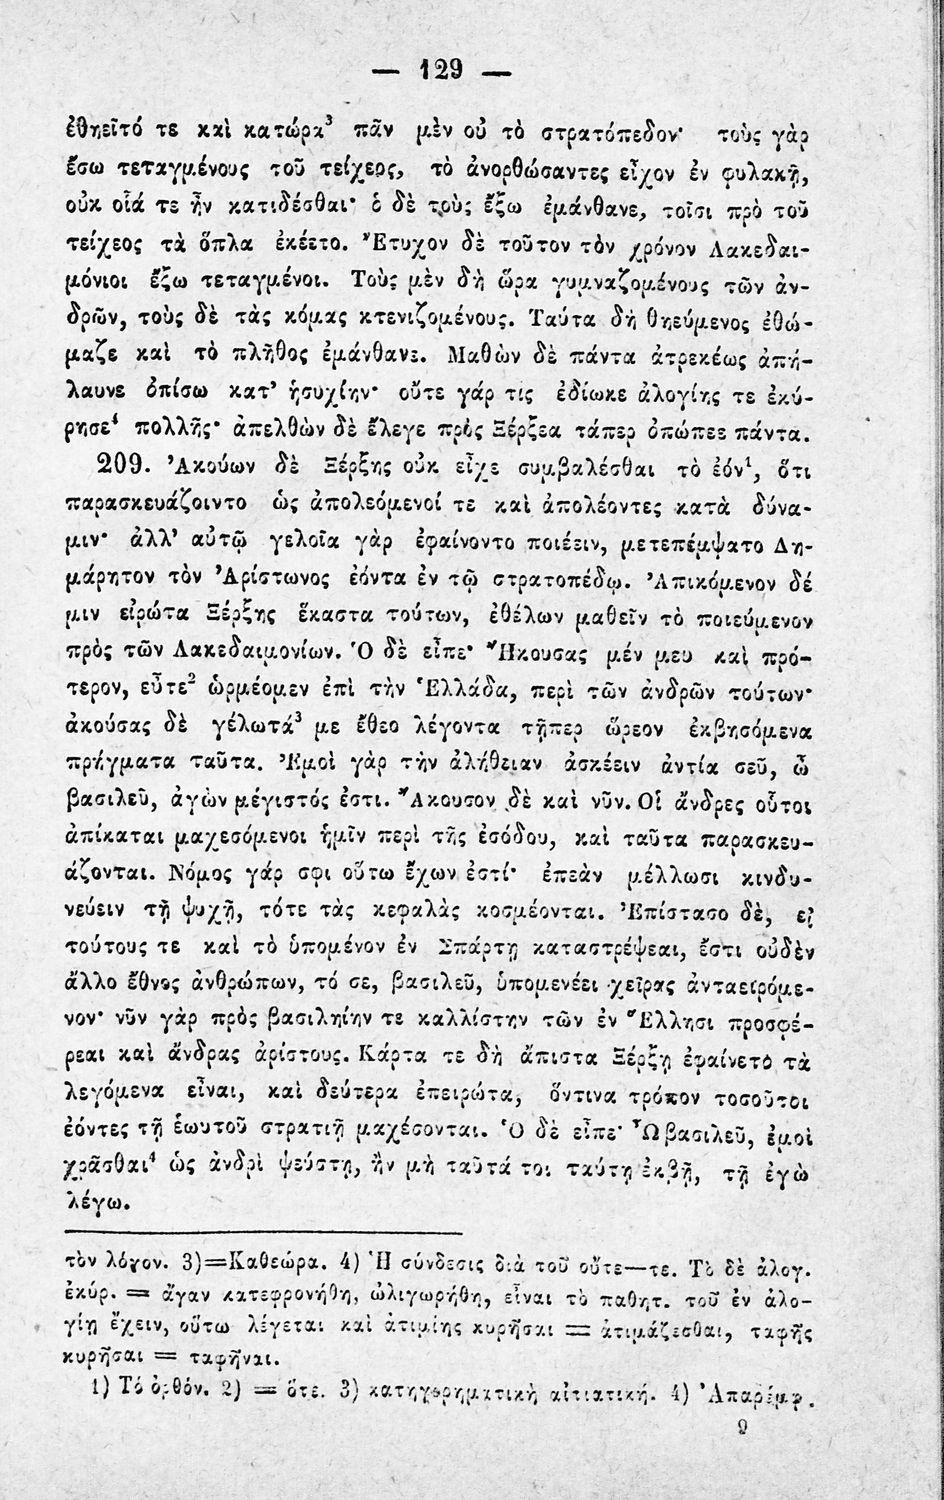 — 129 —
ἐθηεῖτό τε καὶ κατώρα³ πᾶν μὲν οὐ τὸ στρατόπεδον· τοὺς γὰρ
ἔσω τεταγμένους τοῦ τείχεος, τὸ ἀνορθώσαντες εἶχον ἐν φυλακῇ,
οὐκ οἷά τε ἦν κατιδέσθαι· ὁ δὲ τοὺς ἔξω ἐμάνθανε, τοῖσι πρὸ τοῦ
τείχεος τὰ ὅπλα ἐκέετο. Ἔτυχον δὲ τοῦτον τὸν χρόνον Λακεδαι-
μόνιοι ἔξω τεταγμένοι. Τοὺς μὲν δὴ ὥρα γυμναζομένους τῶν ἀν-
δρῶν, τοὺς δὲ τὰς κόμας κτενιζομένους. Ταύτα δὴ θηεύμενος ἐθώ-
μαζε καὶ τὸ πλῆθος ἐμάνθανε. Μαθὼν δὲ πάντα ἀτρεκέως ἀπή-
λαυνε ὀπίσω κατ' ἡσυχίην· οὔτε γάρ τις ἐδίωκε ἀλογίης τε ἐκύ-
ρησε⁴ πολλῆς· ἀπελθὼν δὲ ἔλεγε πρὸς Ξέρξεα τάπερ ὀπώπεε πάντα.
209. Ἀκούων δὲ Ξέρξης οὐκ εἶχε συμβαλέσθαι τὸ ἐόν¹, ὅτι
παρασκευάζοιντο ὡς ἀπολεόμενοί τε καὶ ἀπολέοντες κατὰ δύνα-
μιν· ἀλλ' αὐτῷ γελοῖα γὰρ ἐφαίνοντο ποιέειν, μετεπέμψατο Δη-
μάρητον τὸν Ἀρίστωνος ἐόντα ἐν τῷ στρατοπέδῳ. Ἀπικόμενον δέ
μιν εἰρώτα Ξέρξης ἕκαστα τούτων, ἐθέλων μαθεῖν τὸ ποιεύμενον
πρὸς τῶν Λακεδαιμονίων. Ὁ δὲ εἶπε· Ἤκουσας μέν μευ καὶ πρό-
τερον, εὖτε² ὡρμέομεν ἐπὶ τὴν Ἑλλάδα, περὶ τῶν ἀνδρῶν τούτων·
ἀκούσας δὲ γέλωτά³ με ἔθεο λέγοντα τῇπερ ὥρεον ἐκβησόμενα
πρήγματα ταῦτα. Ἐμοὶ γὰρ τὴν ἀλήθειαν ἀσκέειν ἀντία σεῦ, ὦ
βασιλεῦ, ἀγὼν μέγιστός ἐστι. Ἄκουσον δὲ καὶ νῦν. Οἱ ἄνδρες οὗτοι
ἀπίκαται μαχεσόμενοι ἡμῖν περὶ τῆς ἐσόδου, καὶ ταῦτα παρασκευ-
άζονται. Νόμος γάρ σφι οὕτω ἔχων ἐστί· ἐπεὰν μέλλωσι κινδυ-
νεύειν τῇ ψυχῇ, τότε τὰς κεφαλὰς κοσμέονται. Ἐπίστασο δὲ, εἰ
τούτους τε καὶ τὸ ὑπομένον ἐν Σπάρτῃ καταστρέψεαι, ἔστι οὐδὲν
ἄλλο ἔθνος ἀνθρώπων, τό σε, βασιλεῦ, ὑπομενέει χεῖρας ἀνταειρόμε-
νον· νῦν γὰρ πρὸς βασιληίην τε καλλίστην τῶν ἐν Ἕλλησι προσφέ-
ρεαι καὶ ἄνδρας ἀρίστους. Κάρτα τε δὴ ἄπιστα Ξέρξῃ ἐφαίνετο τὰ
λεγόμενα εἶναι, καὶ δεύτερα ἐπειρώτα, ὅντινα τρόπον τοσοῦτοι
ἐόντες τῇ ἑωυτοῦ στρατιῇ μαχέσονται. Ὁ δὲ εἶπε· Ὦ βασιλεῦ, ἐμοὶ
χρᾶσθαι⁴ ὡς ἀνδρὶ ψεύστῃ, ἢν μὴ ταῦτά τοι ταύτῃ ἐκβῇ, τῇ ἐγὼ
λέγω.
τὸν λόγον. 3)=Καθεώρα. 4) Ἡ σύνδεσις διὰ τοῦ οὔτε—τε. Τὸ δὲ ἀλογ.
ἐκύρ. = ἄγαν κατεφρονήθη, ὠλιγωρήθη, εἶναι τὸ παθητ. τοῦ ἐν ἀλο-
γίῃ ἔχειν, οὕτω λέγεται καὶ ἀτιμίης κυρῆσαι = ἀτιμάζεσθαι, ταφῆς
κυρῆσαι = ταφῆναι.
1) Τό ὀρθόν. 2) = ὅτε. 3) κατηγορηματικὴ αἰτιατική. 4) Ἀπαρέμφ.
9